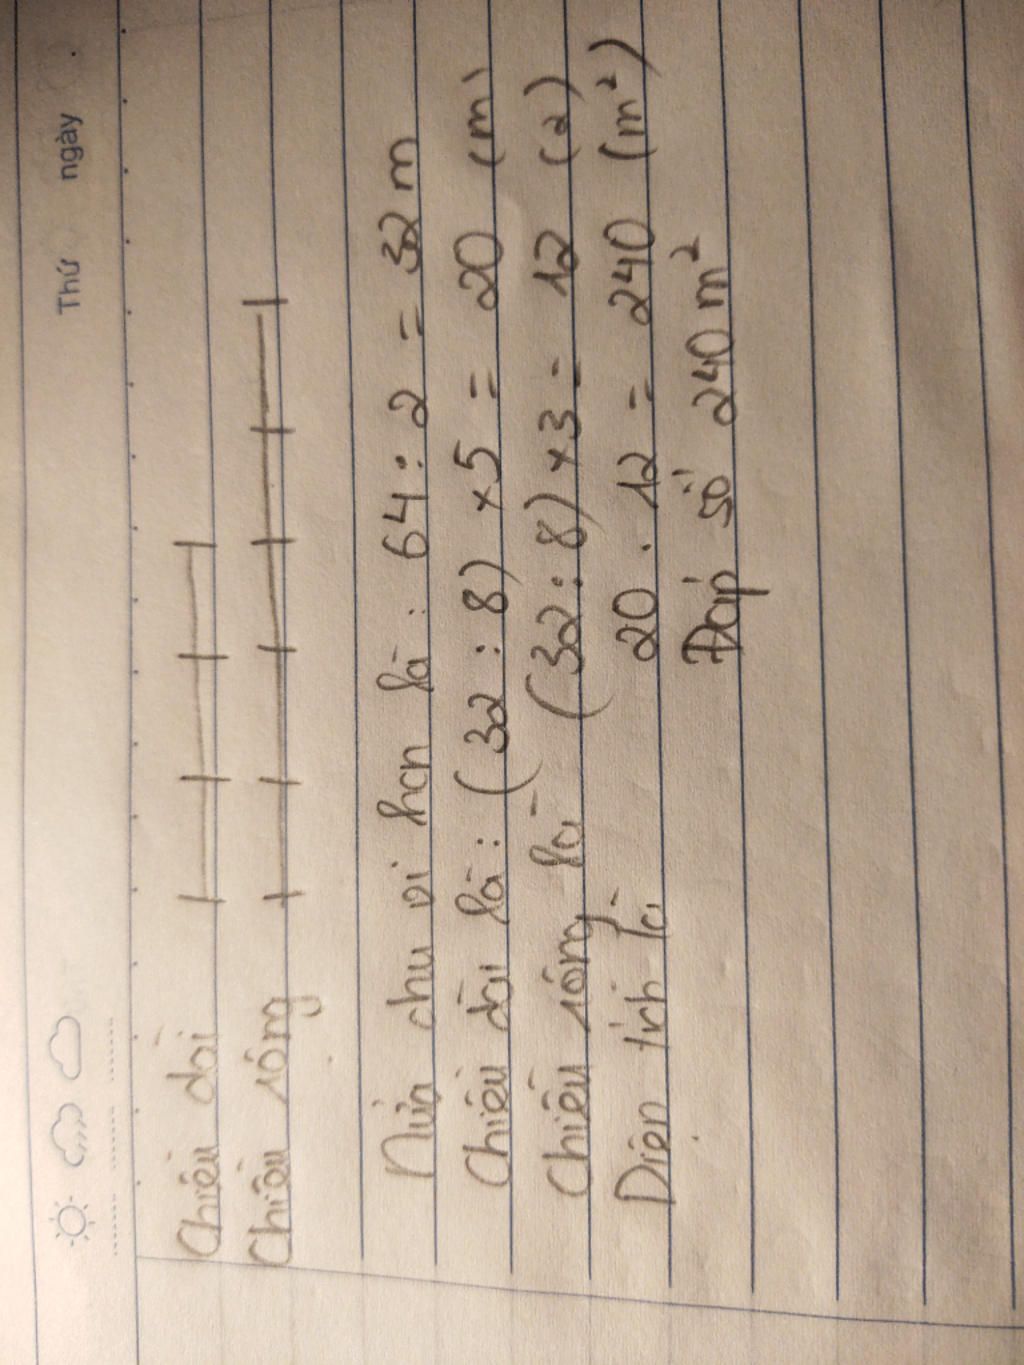 Thứ ngày
Chiều dài
Chiều rộng
Nửa chu vi hcn là : 64 : 2 = 32 m
Chiều dài là : (32 : 8) x 5 = 20 (m)
Chiều rộng là (32 : 8) x 3 = 12 (2)
Diện tích là 20 . 12 = 240 (m²)
Đáp số 240 m²